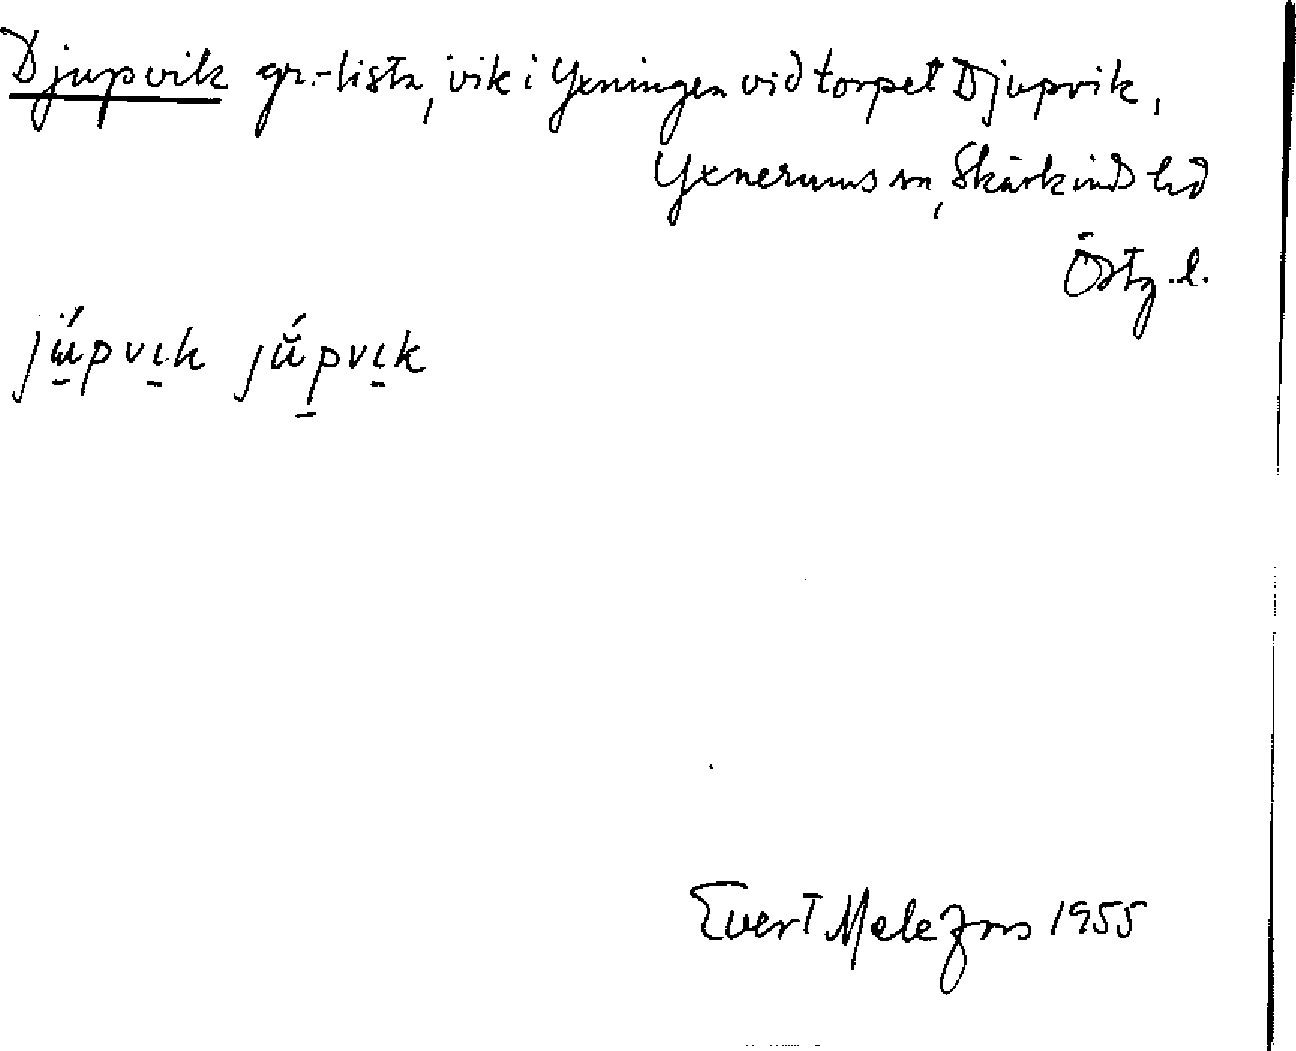 Djupvik gr.-lista, vik i Yxningen vid torpet Djupvik,
Yxnerums sn, Skärkind hd
Östg. l.
jú̱pvi̱k jŭ́p̱vi̱k
Evert Melefors 1955